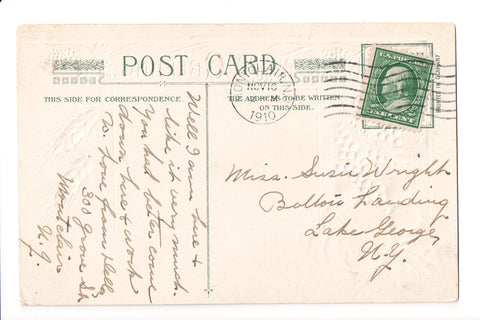 POST CARD
THIS SIDE FOR CORRESPONDENCE.
THE ADDRESS TO BE WRITTEN
ON THIS SIDE.
NOV 18
1910
U.S. POSTAGE
PRINTED IN GERMANY
Well I am here &
like it very much.
You had better come
down here & work
too. Love from Della
300 Grove St
Montclair
N.J.
Miss. Susie Wright
Bolton Landing
Lake George,
N.Y.